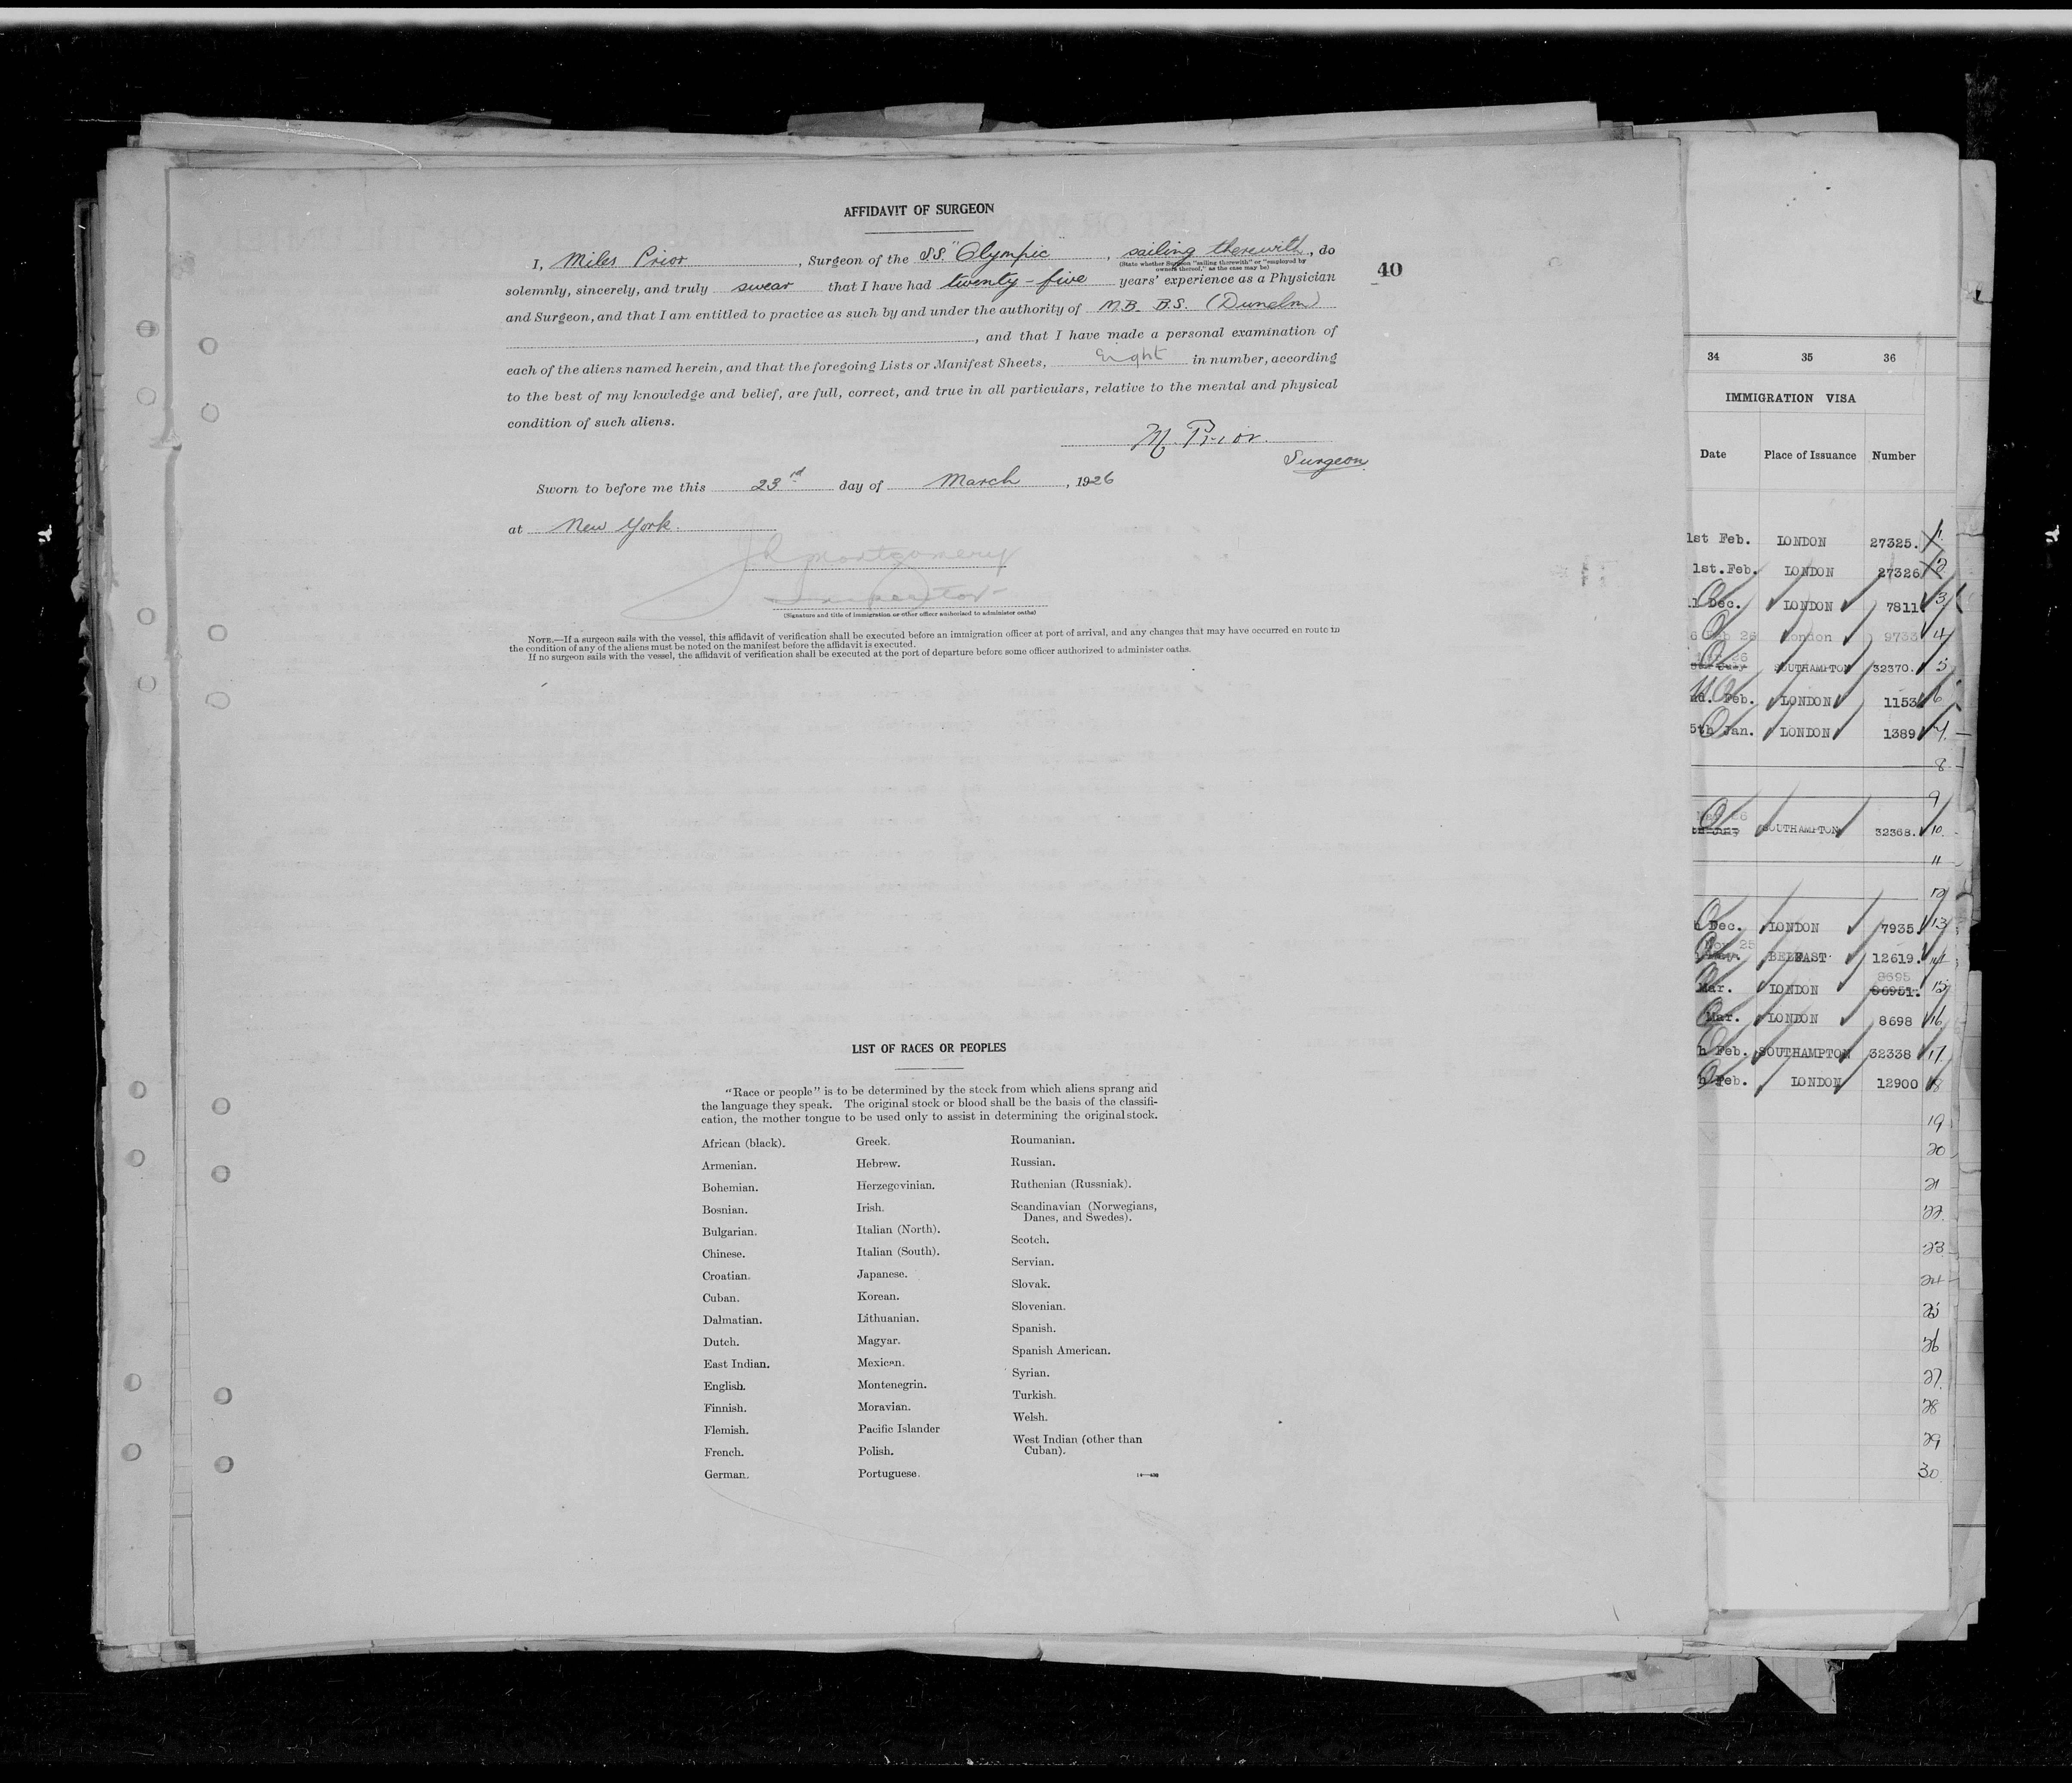 AFFIDAVIT OF SURGEON
I, Miles Prior, Surgeon of the S.S. "Olympic", sailing therewith, do
(State whether Surgeon "sailing therewith" or "employed by
owners thereof," as the case may be)
40
solemnly, sincerely, and truly swear that I have had twenty-five years' experience as a Physician
and Surgeon, and that I am entitled to practice as such by and under the authority of M.B. B.S. (Dunelm)
, and that I have made a personal examination of
each of the aliens named herein, and that the foregoing Lists or Manifest Sheets, Eight in number, according
to the best of my knowledge and belief, are full, correct, and true in all particulars, relative to the mental and physical
condition of such aliens.
M. Prior.
Surgeon
Sworn to before me this 23rd day of March, 1926
at New York.
Montgomery
Inspector
(Signature and title of immigration or other officer authorized to administer oaths)
NOTE.—If a surgeon sails with the vessel, this affidavit of verification shall be executed before an immigration officer at port of arrival, and any changes that may have occurred en route in
the condition of any of the aliens must be noted on the manifest before the affidavit is executed.
If no surgeon sails with the vessel, the affidavit of verification shall be executed at the port of departure before some officer authorized to administer oaths.
LIST OF RACES OR PEOPLES
"Race or people" is to be determined by the stock from which aliens sprang and
the language they speak. The original stock or blood shall be the basis of the classifi-
cation, the mother tongue to be used only to assist in determining the original stock.
African (black).
Armenian.
Bohemian.
Bosnian.
Bulgarian.
Chinese.
Croatian.
Cuban.
Dalmatian.
Dutch.
East Indian.
English.
Finnish.
Flemish.
French.
German.
Greek.
Hebrew.
Herzegovinian.
Irish.
Italian (North).
Italian (South).
Japanese.
Korean.
Lithuanian.
Magyar.
Mexican.
Montenegrin.
Moravian.
Pacific Islander
Polish.
Portuguese.
Roumanian.
Russian.
Ruthenian (Russniak).
Scandinavian (Norwegians,
Danes, and Swedes).
Scotch.
Servian.
Slovak.
Slovenian.
Spanish.
Spanish American.
Syrian.
Turkish.
Welsh.
West Indian (other than
Cuban).
34 35 36
IMMIGRATION VISA
Date Place of Issuance Number
1st Feb. LONDON 27325. 1
1st.Feb. LONDON 27326 2
Dec. LONDON 7811 3
London 9733 4
26 SOUTHAMPTON 32370. 5
Feb. LONDON 1153 6
5th Jan. LONDON 1389 7
8
9
SOUTHAMPTON 32368. 10
11
12
Dec. LONDON 7935. 13
Nov 25
BELFAST 12619. 14
8695
Mar. LONDON 86951. 15
Mar. LONDON 8698 16
h Feb. SOUTHAMPTON 32338 17
h Feb. LONDON 12900 18
19
20
21
22
23
24
25
26
27
28
29
30